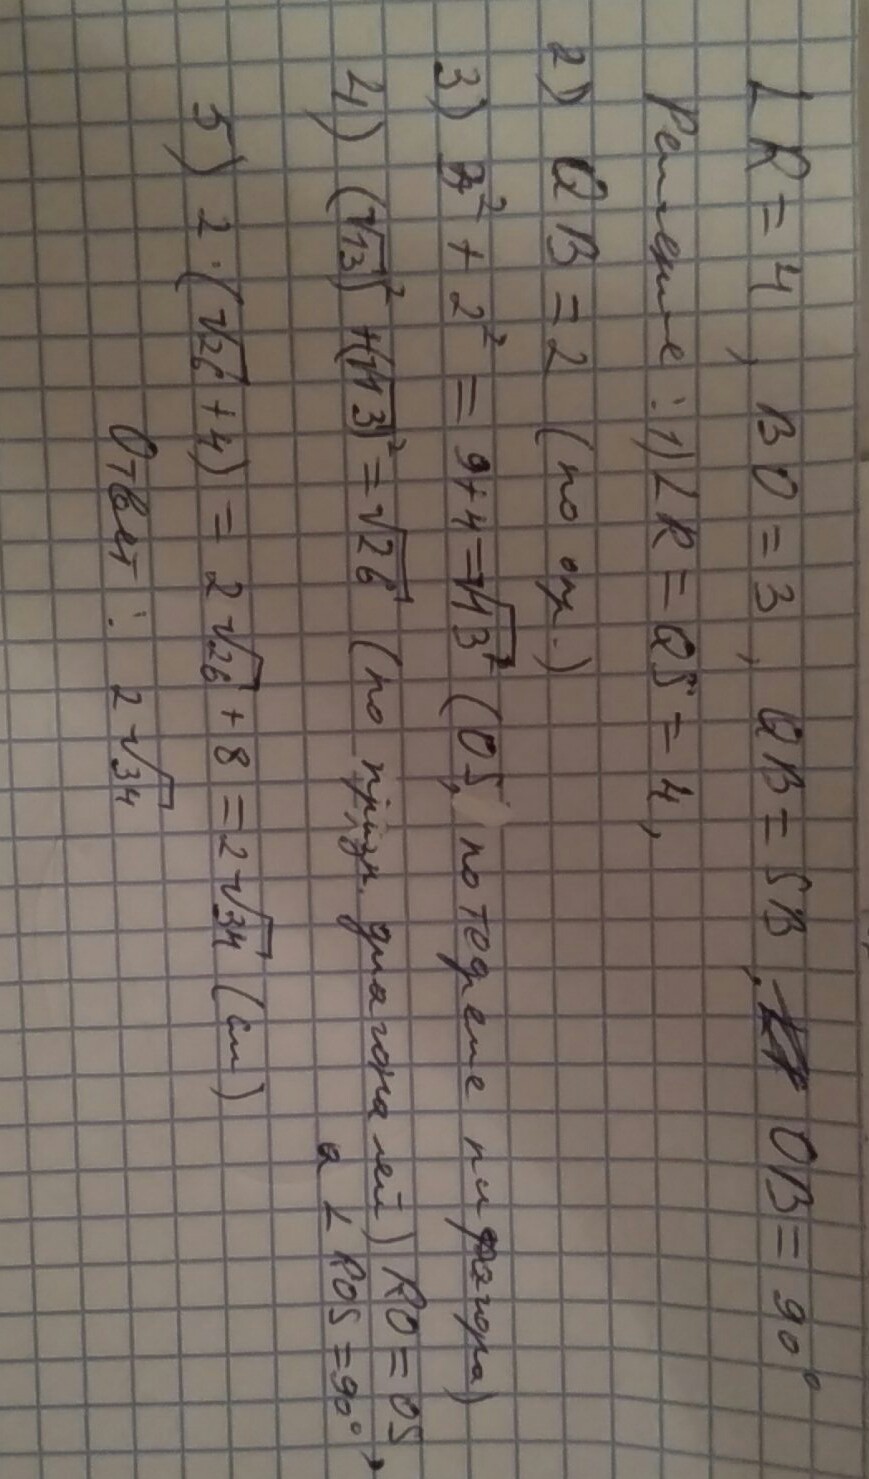 LR = 4, BO = 3, QB = SB, OB = 90°
Решение: 1) LR = QS = 4,
2) QB = 2 (по оп.)
3) 3² + 2² = 9 + 4 = √13² (OS, по теореме пифагора)
4) (√13)² + (√13)² = √26 (по призн. диагоналей) RO = OS,
а ∠ROS = 90°
5) 2 · (√26 + 4) = 2√26 + 8 = 2√34 (см)
Ответ: 2√34